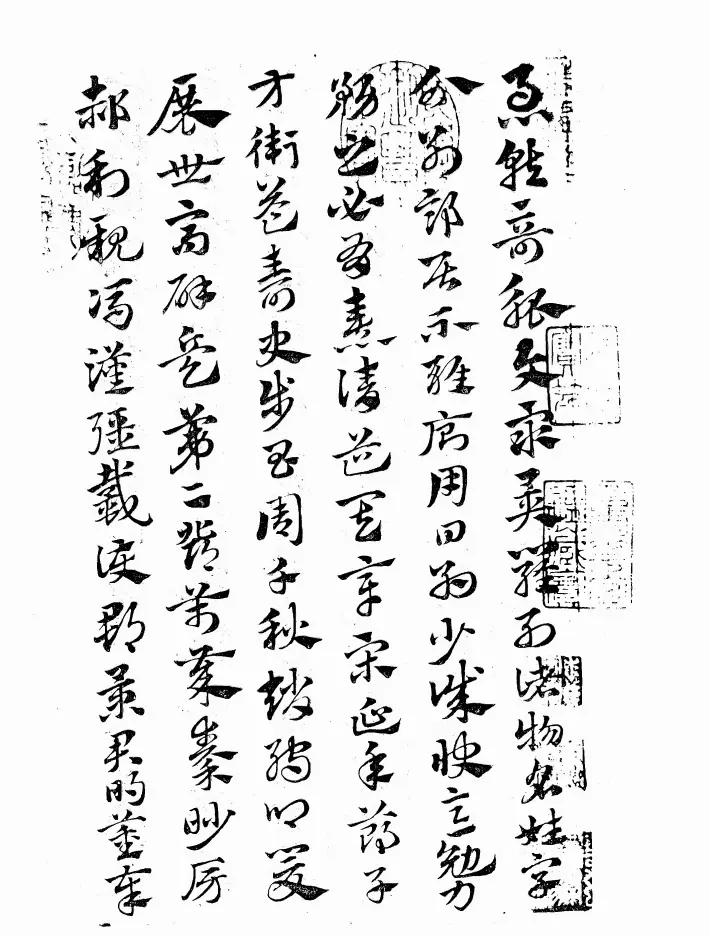 急就奇觚與眾異羅列諸物名姓字
分別部居不雜廁用日約少誠快意勉力
務之必有憙請道其章宋延年鄭子
方衛益壽史步昌周千秋趙孺卿爰
展世高辟兵第二鄧萬歲秦眇房
郝利親馮漢彊戴護郡景君明董奉